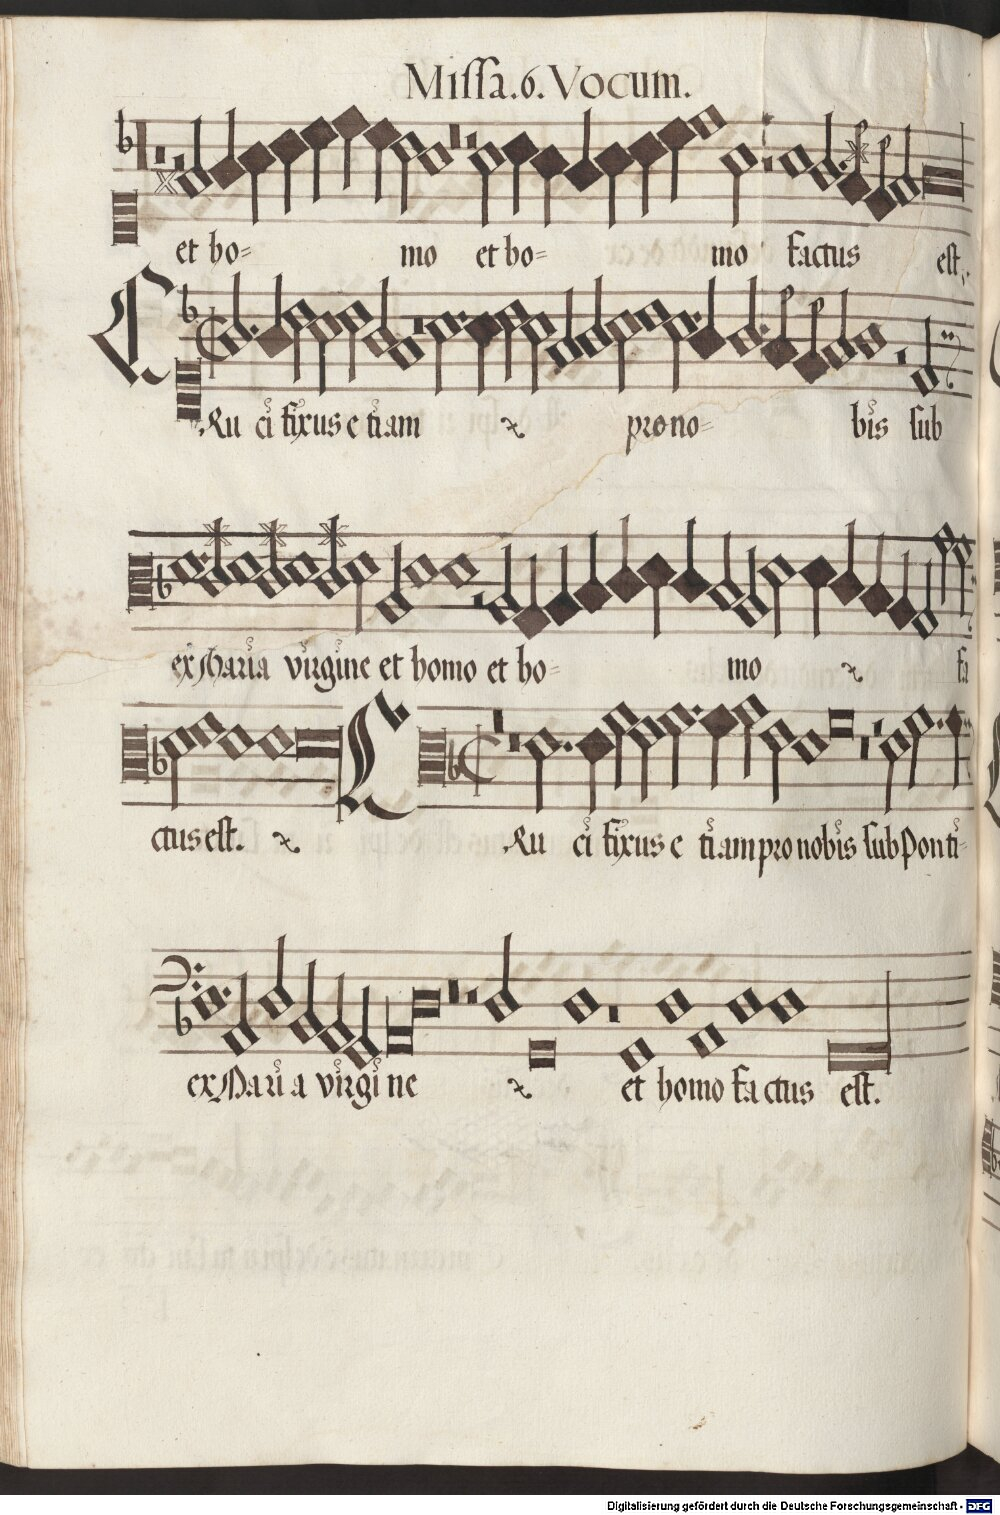 Missa.6.Vocum.
et ho= mo et ho= mo factus est.
CRu ci fixus e tiam pro no= bis sub
ex Maria virgine et homo et ho= mo fa
ctus est. CRu ci fixus e tiam pro nobis sub Ponti=
ex Mari a virgi ne et homo fa ctus est.
Digitalisierung gefördert durch die Deutsche Forschungsgemeinschaft - DFG